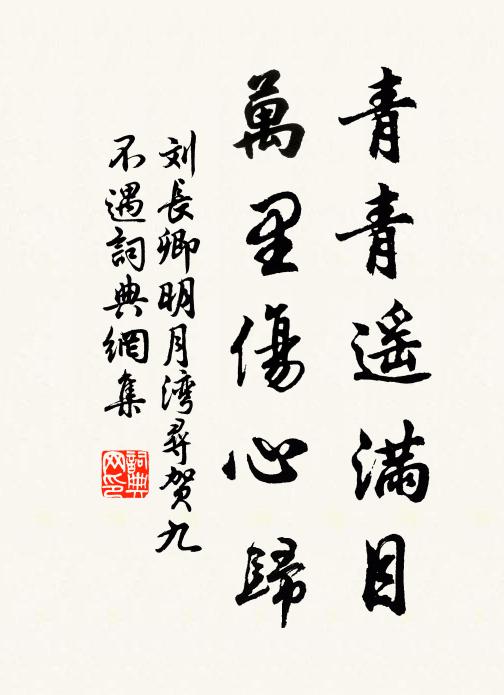 青青遥滿目
萬里傷心歸
刘長卿明月湾尋贺九
不遇詞典網集
詞典
网印